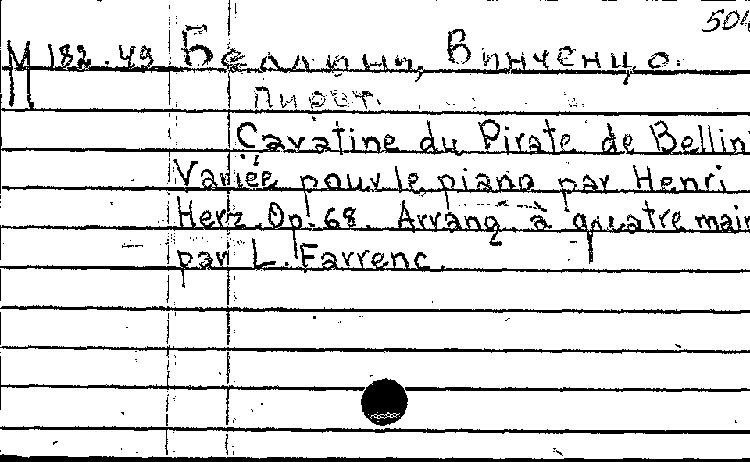 504
М 182.49 Беллини, Винченцо.
Пират.
Cavatine du Pirate de Bellin
Variée pour le piano par Henri
Herz. Op. 68. Arrang. à quatre main
par L. Farrenc.